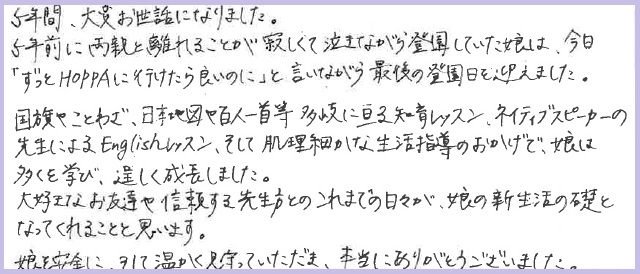 5年間、大変お世話になりました。
5年前に両親と離れることが寂しくて泣きながら登園していた娘は、今日
「ずっとHOPPAに行けたら良いのに」と言いながら最後の登園日を迎えました。
国旗やことわざ、日本地図や百人一首等 多岐に亘る知育レッスン、ネイティブスピーカーの
先生によるEnglishレッスン、そして肌理細かな生活指導のおかげで、娘は
多くを学び、逞しく成長しました。
大好きなお友達や信頼する先生方とのこれまでの日々が、娘の新生活の礎と
なってくれることと思います。
娘を安全に、そして温かく見守っていただき、本当にありがとうございました。